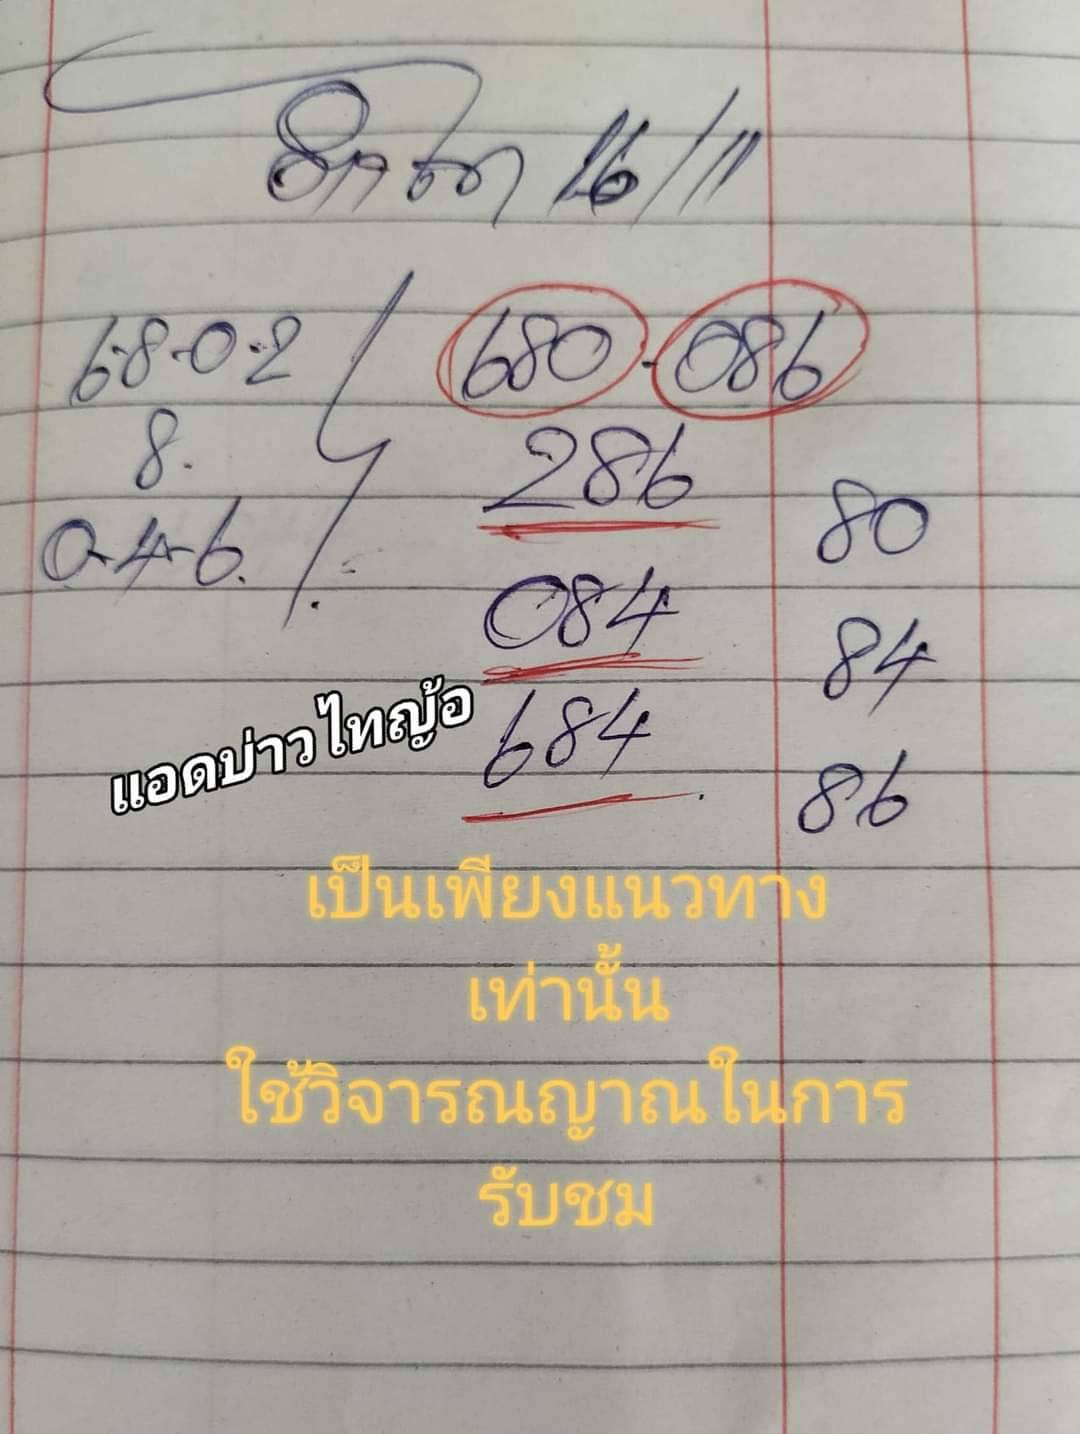 16/11
6-8-0-2
8.
0-4-6.
680-086
286
084
684
80
84
86
แอดบ่าวไทญ้อ
เป็นเพียงแนวทาง
เท่านั้น
ใช้วิจารณญาณในการ
รับชม